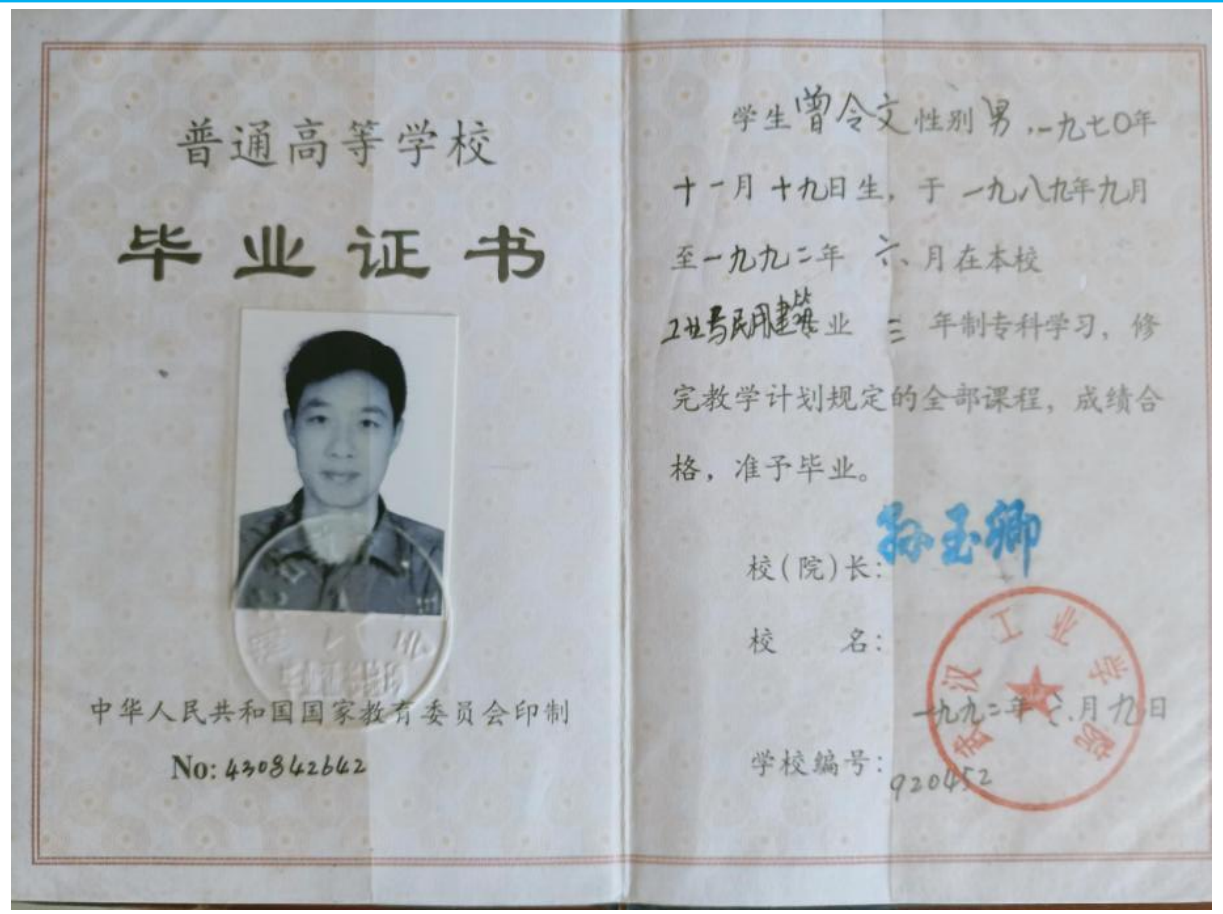 普通高等学校
毕业证书
中华人民共和国国家教育委员会印制
No: 430842642
学生曾令文性别男,一九七〇年
十一月十九日生,于一九八九年九月
至一九九二年六月在本校
工业与民用建筑业三年制专科学习,修
完教学计划规定的全部课程,成绩合
格,准予毕业。
校(院)长:孙玉卿
校名:
武汉工业学院
一九九二年六月九日
学校编号:920452